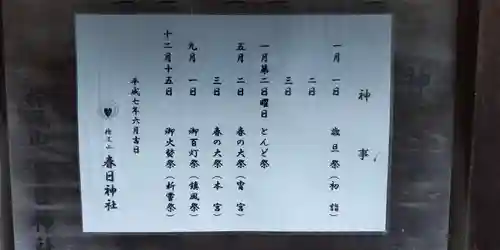 神事
一月 一日 歳旦祭（初詣）
二日
三日
一月第二日曜日 とんど祭
五月 二日 春の大祭（宵宮）
三日 春の大祭（本宮）
九月 一日 御百灯祭（鎮風祭）
十二月十五日 御火焚祭（新嘗祭）
平成七年六月吉日
春日神社